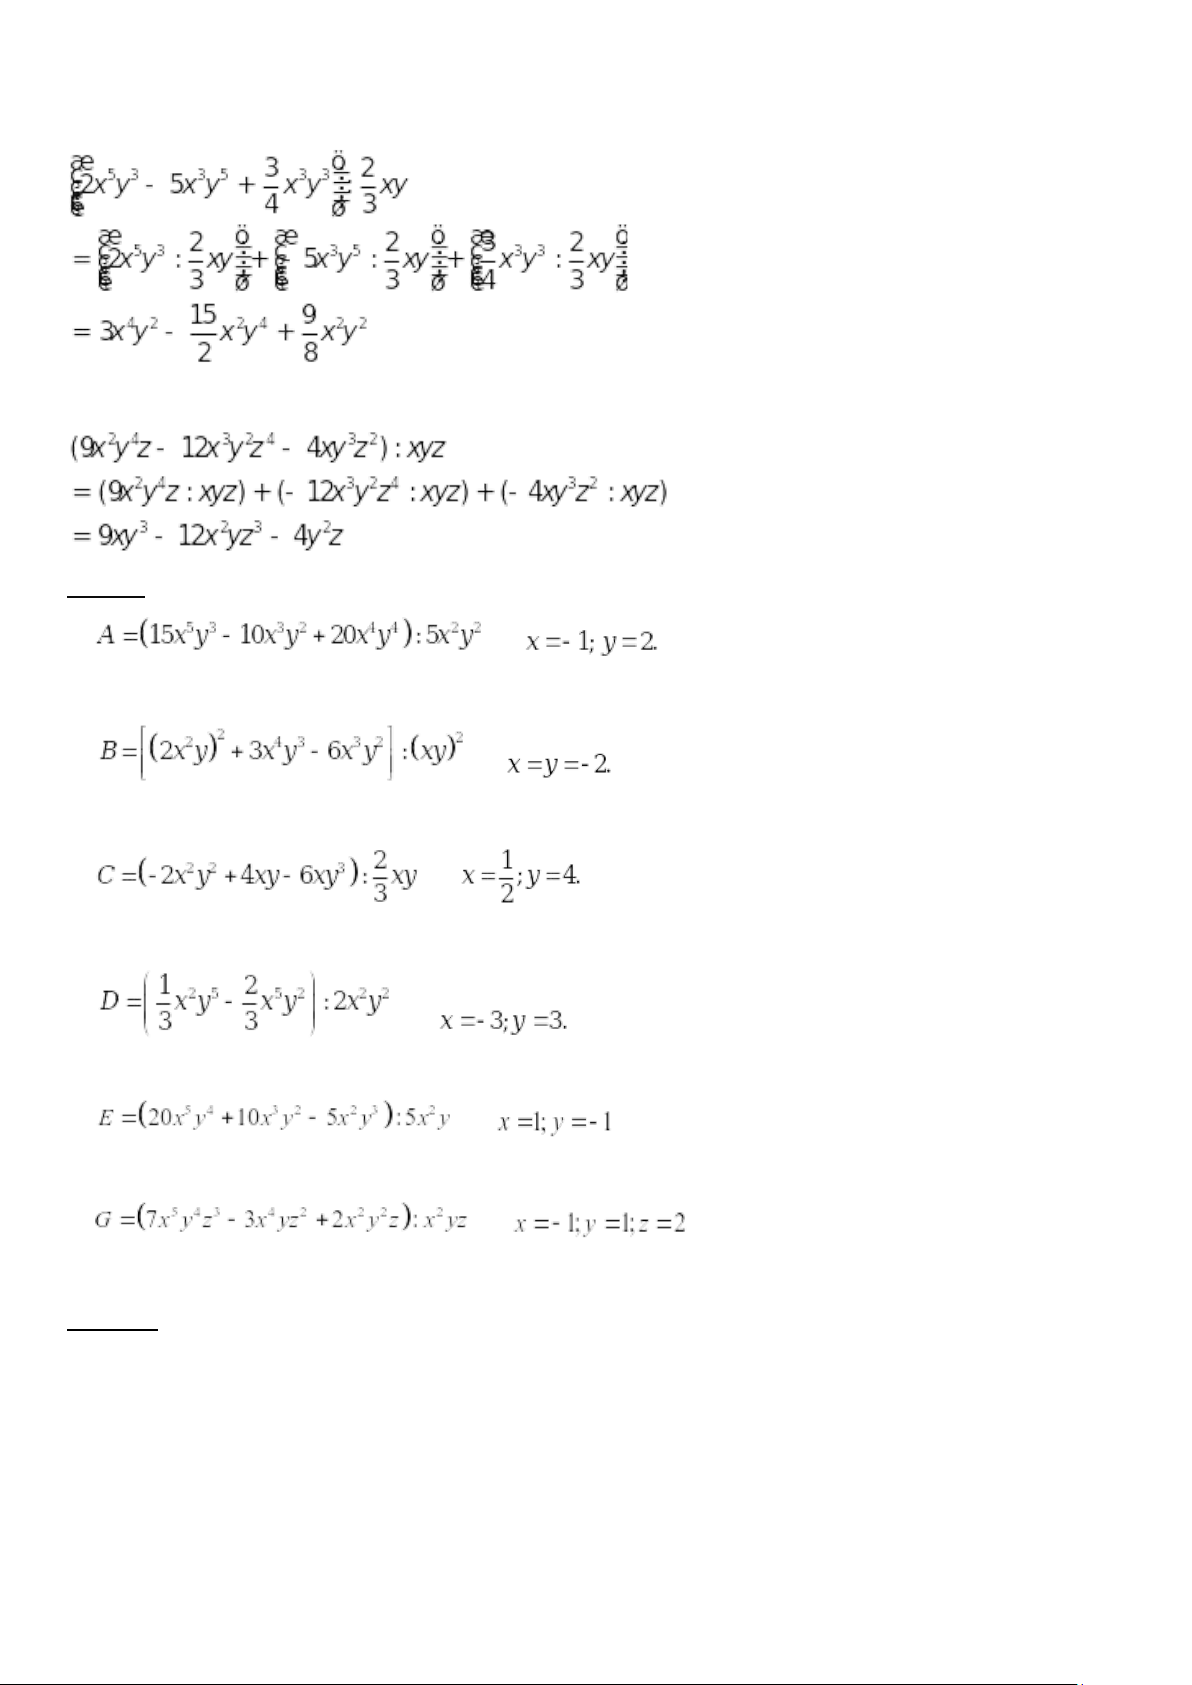 (2x⁵y³ - 5x³y⁵ + 3/4 x³y³) : 2/3 xy
= (2x⁵y³ : 2/3 xy) + (- 5x³y⁵ : 2/3 xy) + (3/4 x³y³ : 2/3 xy)
= 3x⁴y² - 15/2 x²y⁴ + 9/8 x²y²
(9x²y⁴z - 12x³y²z⁴ - 4xy³z²) : xyz
= (9x²y⁴z : xyz) + (- 12x³y²z⁴ : xyz) + (- 4xy³z² : xyz)
= 9xy³ - 12x²yz³ - 4y²z
A = (15x⁵y³ - 10x³y² + 20x⁴y⁴) : 5x²y² x = - 1; y = 2.
B = [(2x²y)² + 3x⁴y³ - 6x³y²] : (xy)² x = y = - 2.
C = (- 2x²y² + 4xy - 6xy³) : 2/3 xy x = 1/2; y = 4.
D = (1/3 x²y⁵ - 2/3 x⁵y²) : 2x²y² x = - 3; y = 3.
E = (20x⁵y⁴ + 10x³y² - 5x²y³) : 5x²y x = 1; y = - 1
G = (7x⁵y⁴z³ - 3x⁴yz² + 2x²y²z) : x²yz x = - 1; y = 1; z = 2